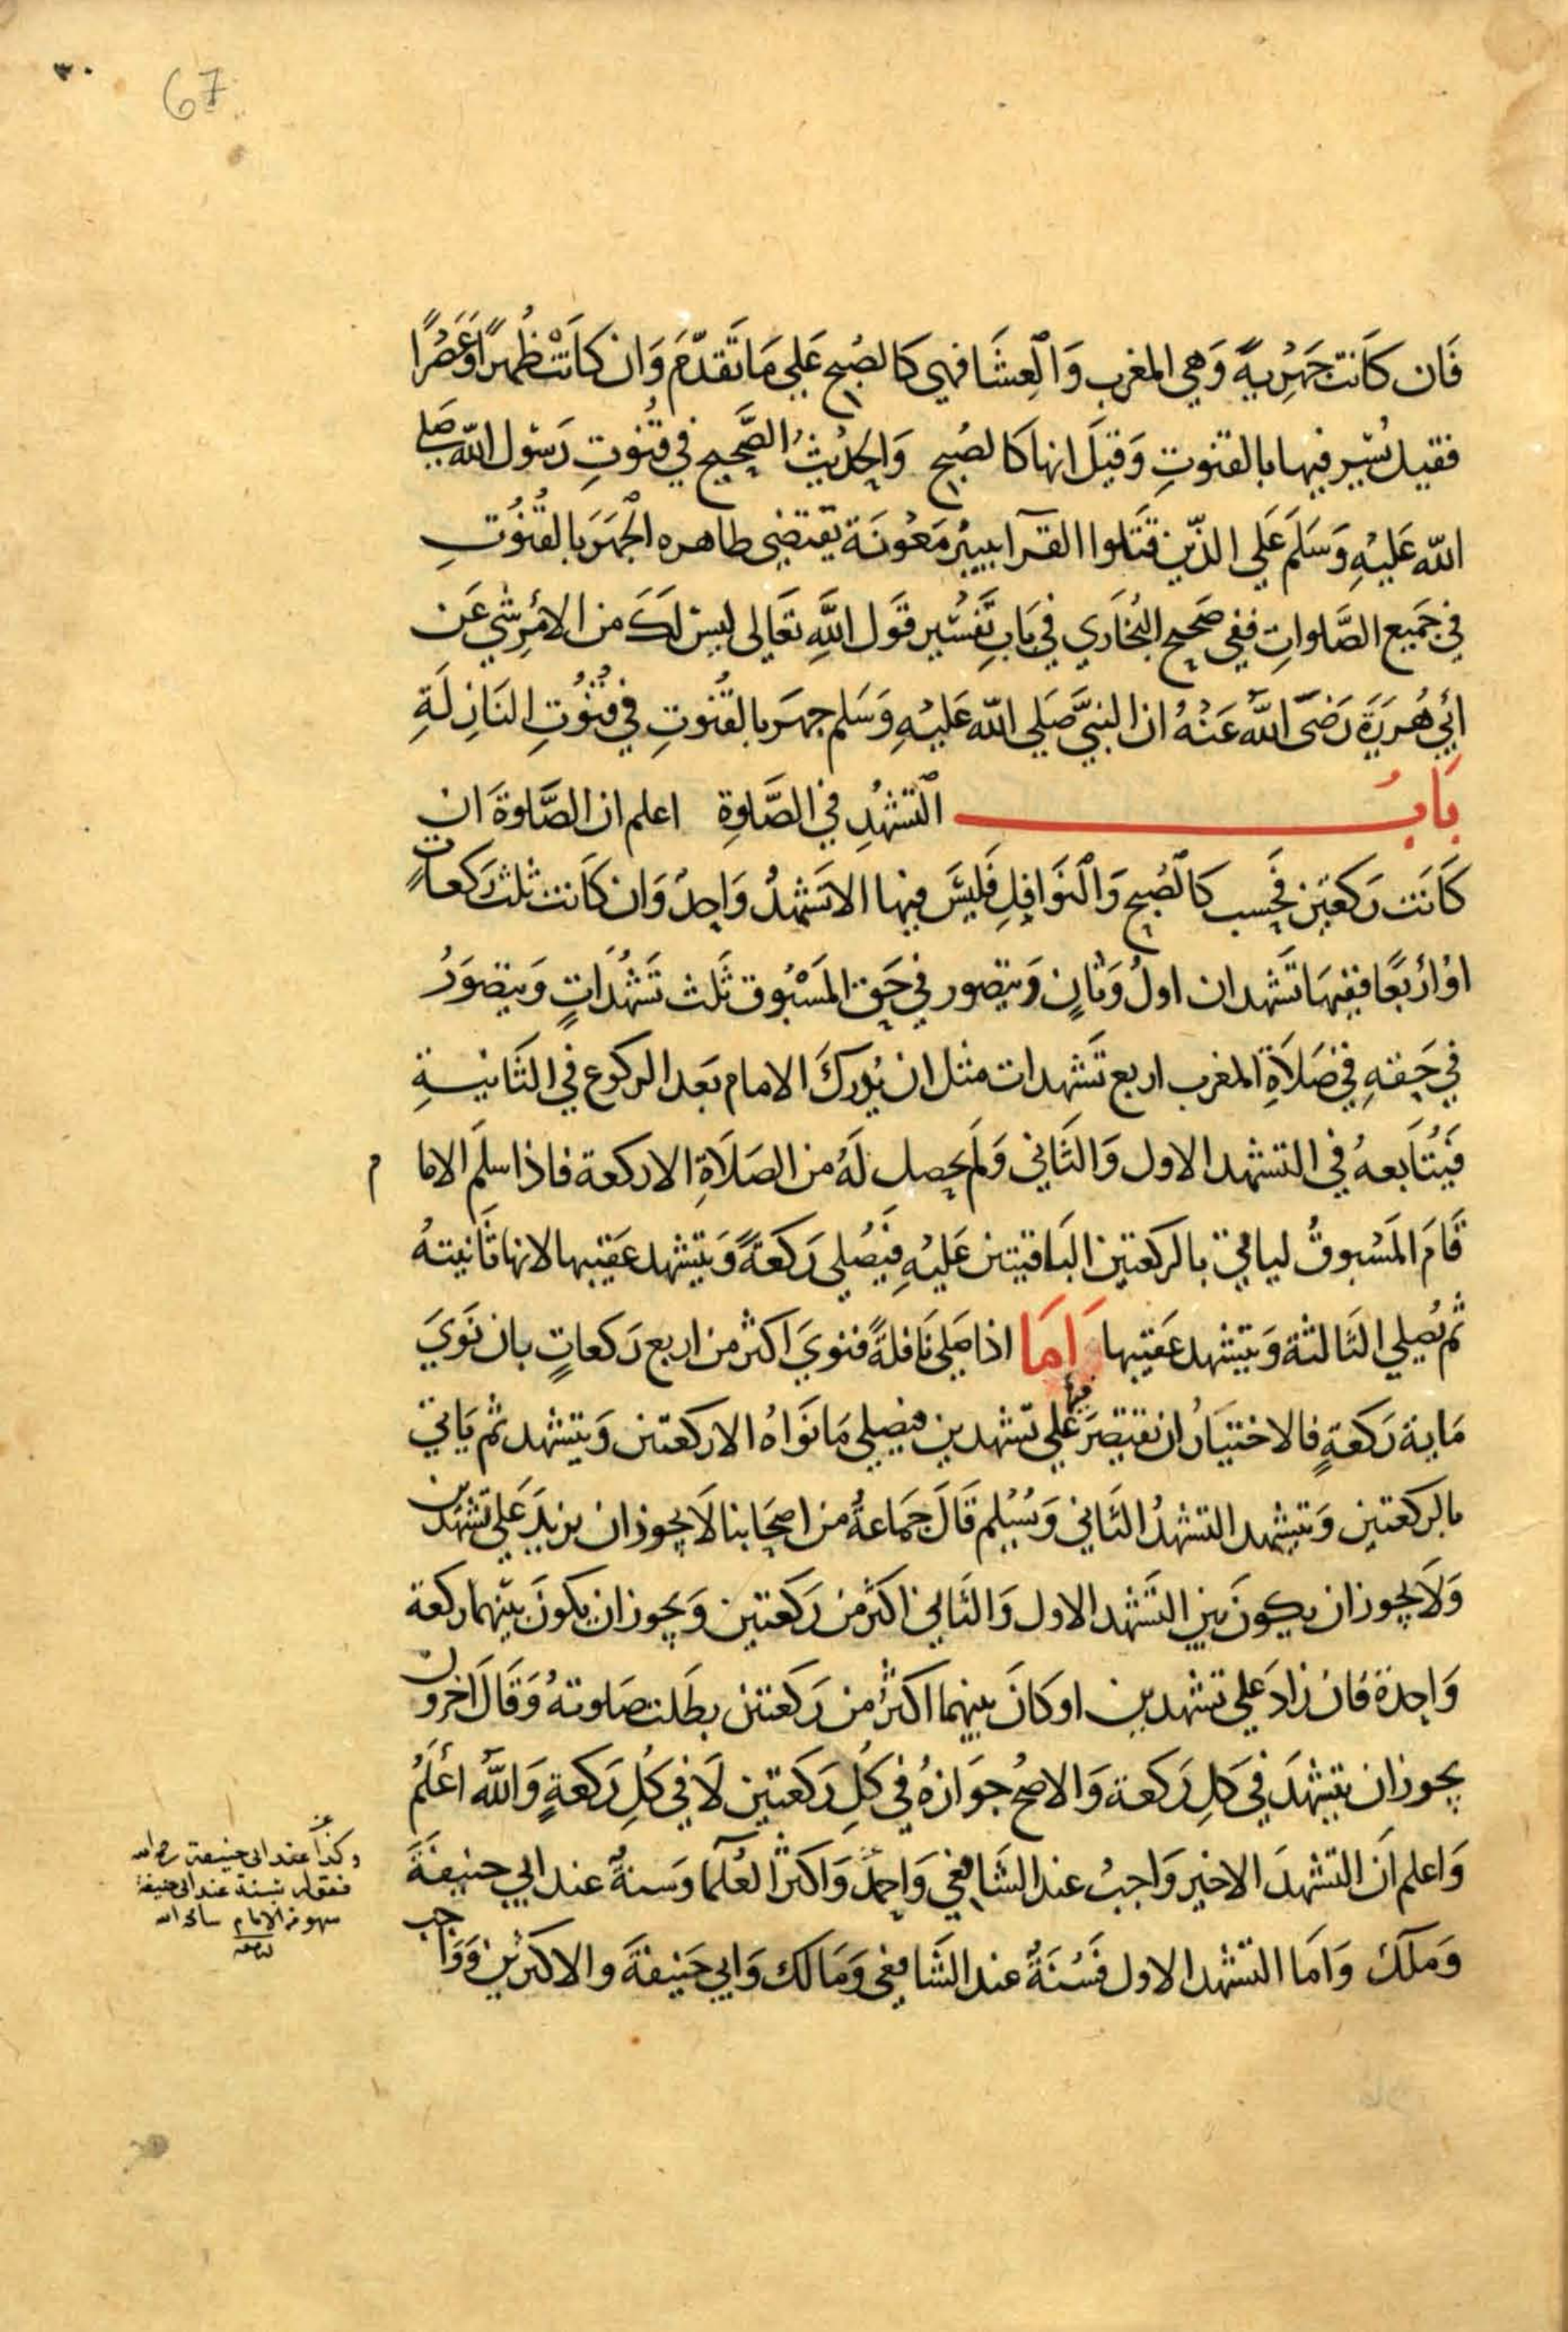 67
فَان كَانَت جَهْرِيةً وَهي المغرب وَالعِشَا فهي كَالصُبح عَلي مَا تَقدّمَ وَان كَانَتْ ظُهرًا وَعَصْرًا
فقيل نُسِّر فيها بالقنوتِ وَقيلَ انها كالصُبح وَالحَديْثُ الصَّحِيح في قنُوتِ رَسُول الله صَلي
الله عَليْهِ وَسَلمَ عَلي الذّين قتَلوا القرآ ببيْر مَعُونَة يَقتضي ظاهره الجَهرَ بالقُنُوتِ
في جَميْع الصَّلواتِ ففي صَحيح البُخاَري في بَابِ تَفسْير قَول اللَّهِ تعَالى ليسْ لَكَ من الامْرِ شي عَن
ابُي هُريَرَةَ رَضيَ اللَّهُ عَنْهُ ان النبيَّ صَلي الله عَليْهِ وَسَلم جهرَ بالقُنوتِ في قنُوُتِ النَازِلَةِ
بَابُ التشَهُدِ في الصَّلوةِ اعلم ان الصَّلوةَ ان
كَانَت رَكعتَين فحَسب كالصُبح وَالنَوَافِلِ فَليسَ فيها الا تَشَهُدُ وَاحِدُ وَان كَانت ثلث رَكعاتٍ
اوْ ارْبعًا ففيهَا تَشهدان اولُ وَثانٍ وَيتصور في حَق المَسْبُوق ثَلث تَشَهُدَاتٍ وَيتصَورُ
في حَقهِ في صَلاَةِ المغرب اربع تَشَهدات مثل ان يُدركَ الامام بَعد الركوع في الثَانيةِ
فيُتَابعهُ في التشهد الاول وَالثَاني وَلَم يحصل لَهُ من الصَلاَةِ الا ركعة فاذا سلمَ الاما م
قَامَ المَسْبوقُ لياتي بالركعتين البَاقيتين عَليْهِ فيُصَلي رَكعَةً وَيتشهد عَقيْبها لانها ثَانيتهُ
ثم يُصَلي الثَالثة وَيتشهد عَقيْبها وَامَا اذا صَلي نَافلةً فنوي اكثر من اربع رَكعاتٍ بان نَوَيَ
مَاية رَكعةٍ فالاختيَارُ ان يَقتصِرَ فيها عَلي تَشهدين فيصَلي مَا نَوَاهُ الا ركعتين وَيتشهد ثم يَاتي
بالركعتين وَيتشهد التشهدُ الثَاني وَيُسَلم قَالَ جَمَاعةُ من اصحَابنا لَا يجوز ان يزيدَ عَلي تشهدين
وَلَا يجوز ان يكونَ بين التَشهد الاول وَالثَاني اكثر من رَكعتين وَيجوز ان يكونَ بينهما ركعة
وَاحدة فان زادَ عَلي تشهدين او كَانَ بينهما اكثرُ من رَكعتين بطَلت صَلوتهُ وَقَالَ اخَرون
يجوز ان يتشهدَ في كلِ رَكعة وَالاصحُ جوَازهُ في كُلِ رَكعَتين لَا في كُلِ رَكعةٍ وَاللَّهُ اعْلَمُ
وَاعلم اَن التشهدَ الاخير وَاجبُ عند الشَافِعي وَاحمدَ وَاكثر العُلَمآ وَسنةُ عند ابي حنيفَةَ
وَمَلكَ وَامَا التَشهد الاول فَسُنَةُ عند الشَافعي وَمَالك وَابي حَنيفَةَ والاكثرين وَوَاجب
وكذا عند ابي حنيفة رحمه الله
فقوله بسنة عند ابي حنيفة
سهو من الامام سامحه الله